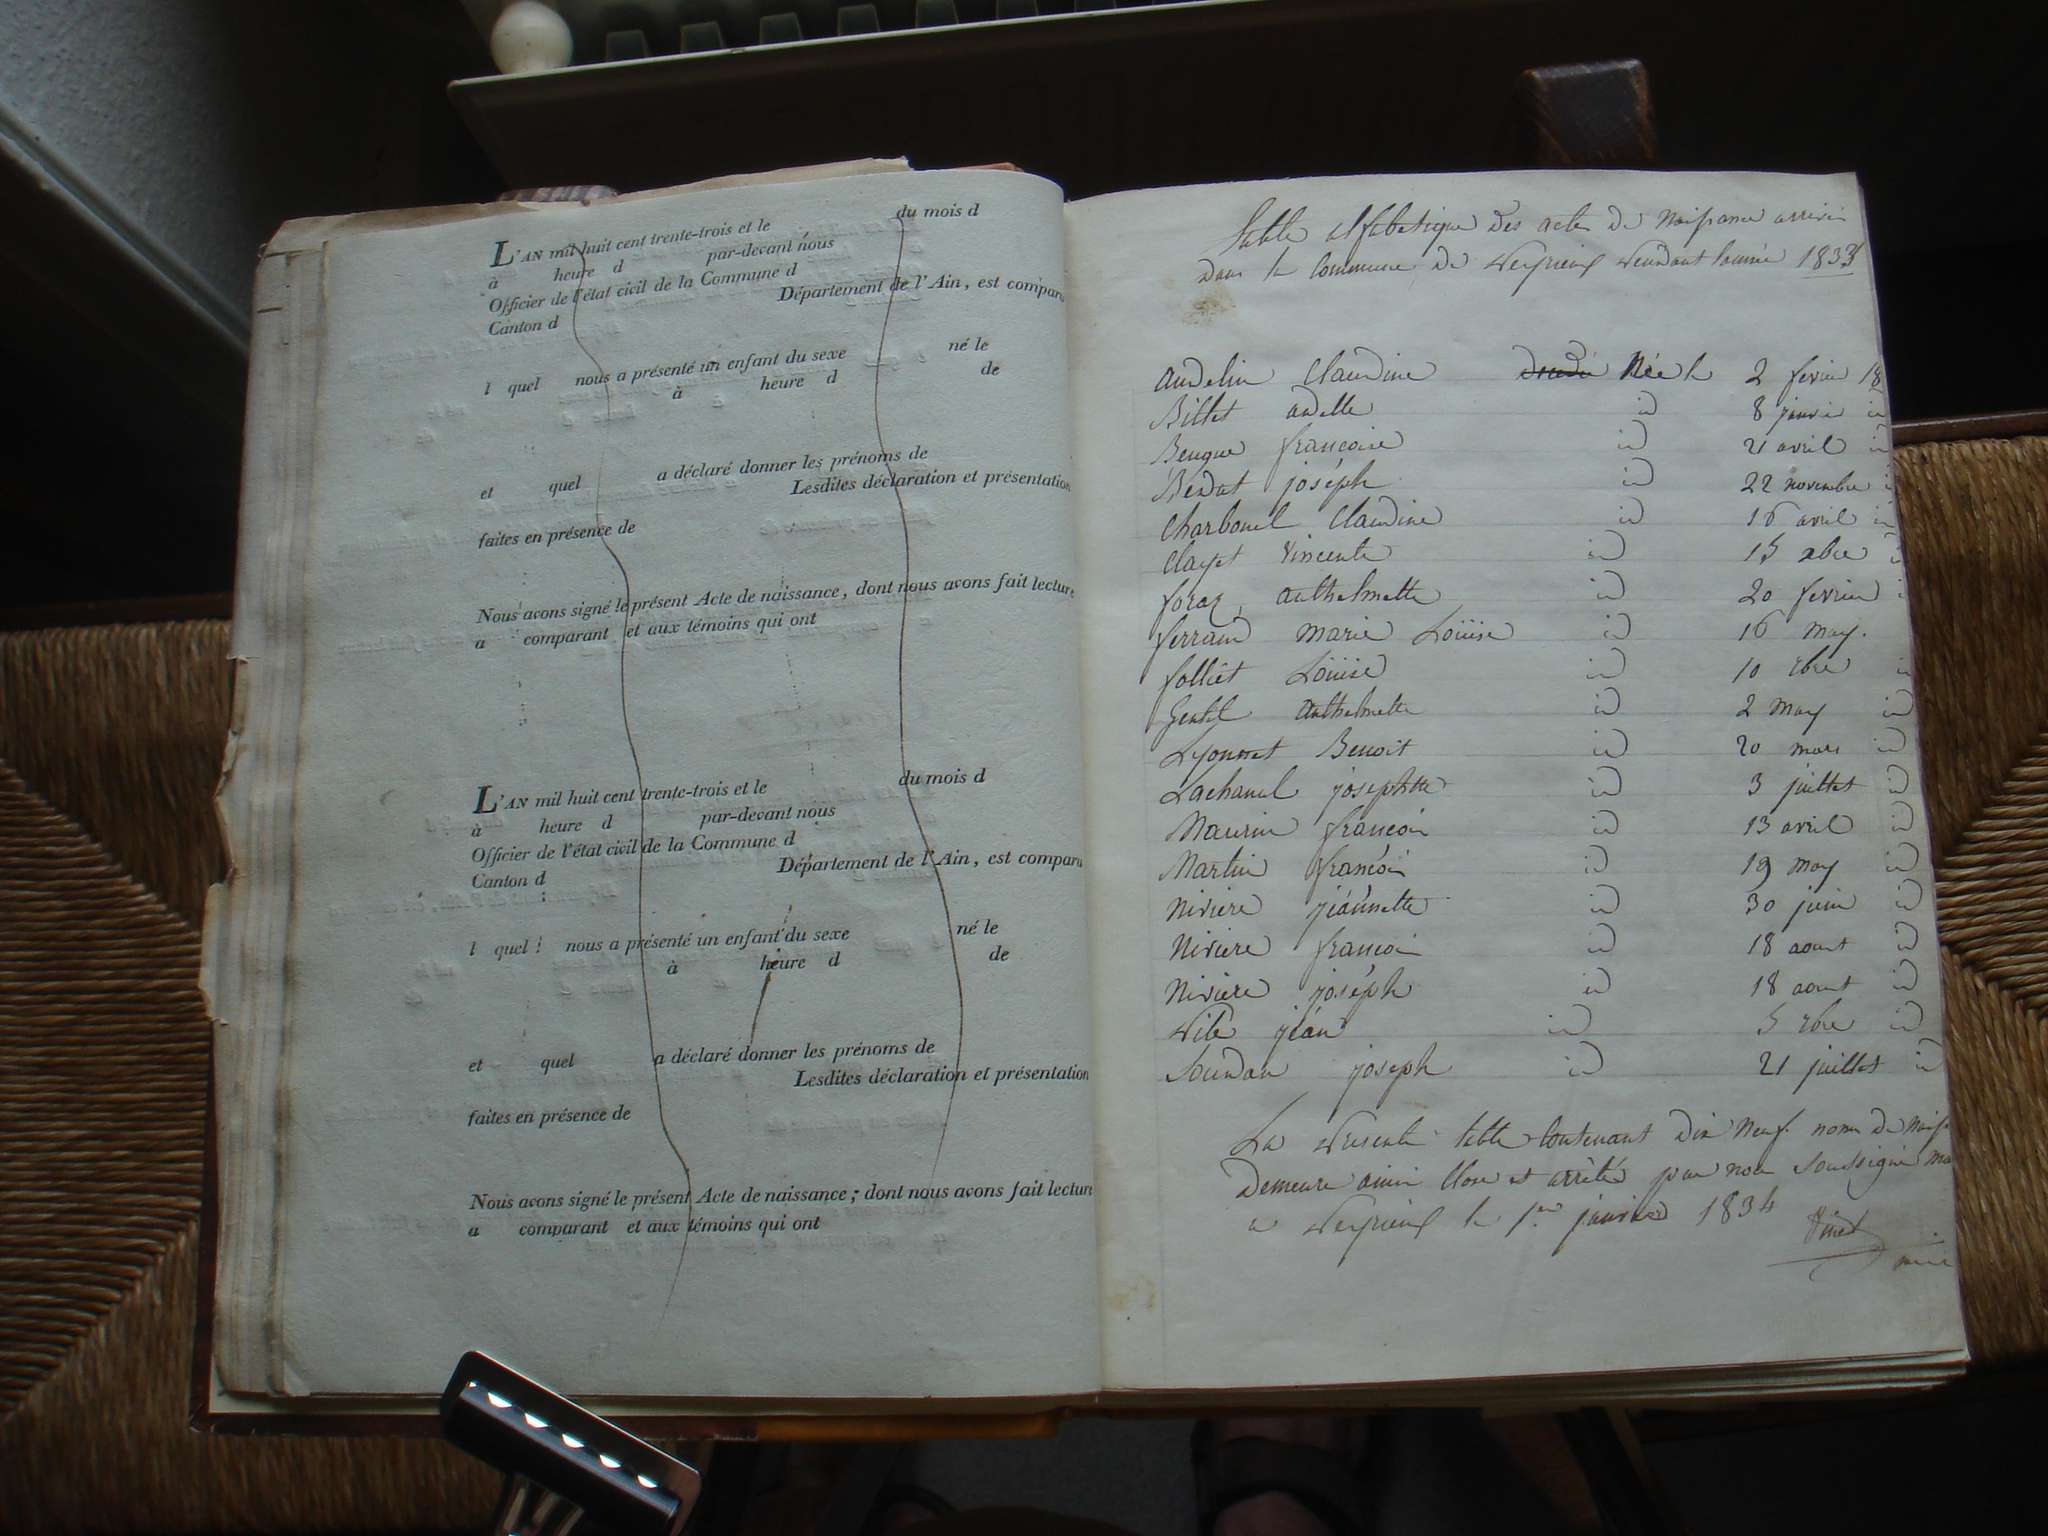 L'AN mil huit cent trente-trois et le du mois d
à heure d par-devant nous
Officier de l'état civil de la Commune d
Canton d Département de l'Ain, est comparu
l quel nous a présenté un enfant du sexe né le
à heure d de
et quel a déclaré donner les prénoms de
Lesdites déclaration et présentation
faites en présence de
Nous avons signé le présent Acte de naissance, dont nous avons fait lecture
a comparant et aux témoins qui ont
L'AN mil huit cent trente-trois et le du mois d
à heure d par-devant nous
Officier de l'état civil de la Commune d
Canton d Département de l'Ain, est comparu
l quel nous a présenté un enfant du sexe né le
à heure d de
et quel a déclaré donner les prénoms de
Lesdites déclaration et présentation
faites en présence de
Nous avons signé le présent Acte de naissance; dont nous avons fait lecture
a comparant et aux témoins qui ont
table alfabetique des actes de Naissance arrivés
dans la Commune de pendant l'année 1833
Claudine Née le 2 fevrier 18
Billet adelle id 8 janvier id
francoise id 21 avril id
joséph id 22 novembre
Charbonel Claudine id 16 avril id
Claret Vincente id 15 xbre
foraz anthelmette id 20 fevrier
ferrand marie Loüise id 16 may.
folliet Loüise id 10 id
Gentil anthelmette id 2 may id
Lyonnet Benoit id 20 mars id
Lachanel josephtte id 3 juillet id
Maurin françois id 13 avril id
Martin françois id 19 may id
Niviere jéannette id 30 juin id
Niviere francois id 18 aout id
Niviere joséph id 18 aout id
jéan id 5 id
joseph id 21 juillet id
La presente table Contenant dix Neuf noms de
Demeure ainsi Close et arrêtée par nous Soussigné
a le 1er janvier 1834